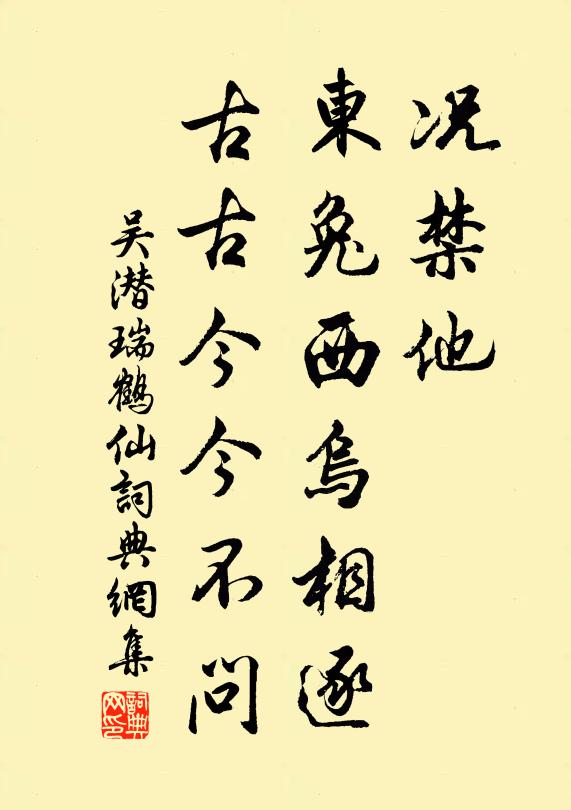 况禁他
東兔西烏相逐
古古今今不問
吴潜瑞鶴仙詞典網集
詞典网印